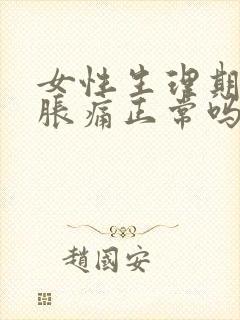 女性生理期
胀痛正常吗
趙國安